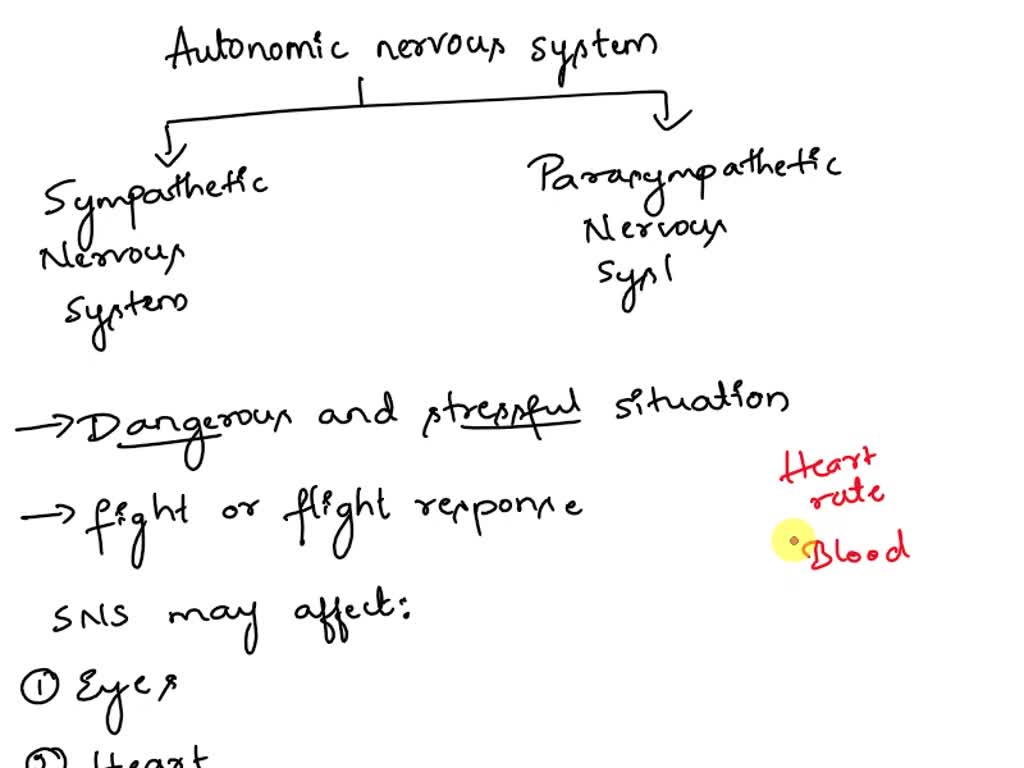 Autonomic nervous system
Sympasthetic
Nervous
System
Parasympathetic
Nervous
Sys
→ Dangerous and stressful situation
→ fight or flight response
Heart
rate
Blood
SNS may affect:
① Eyes
② Heart